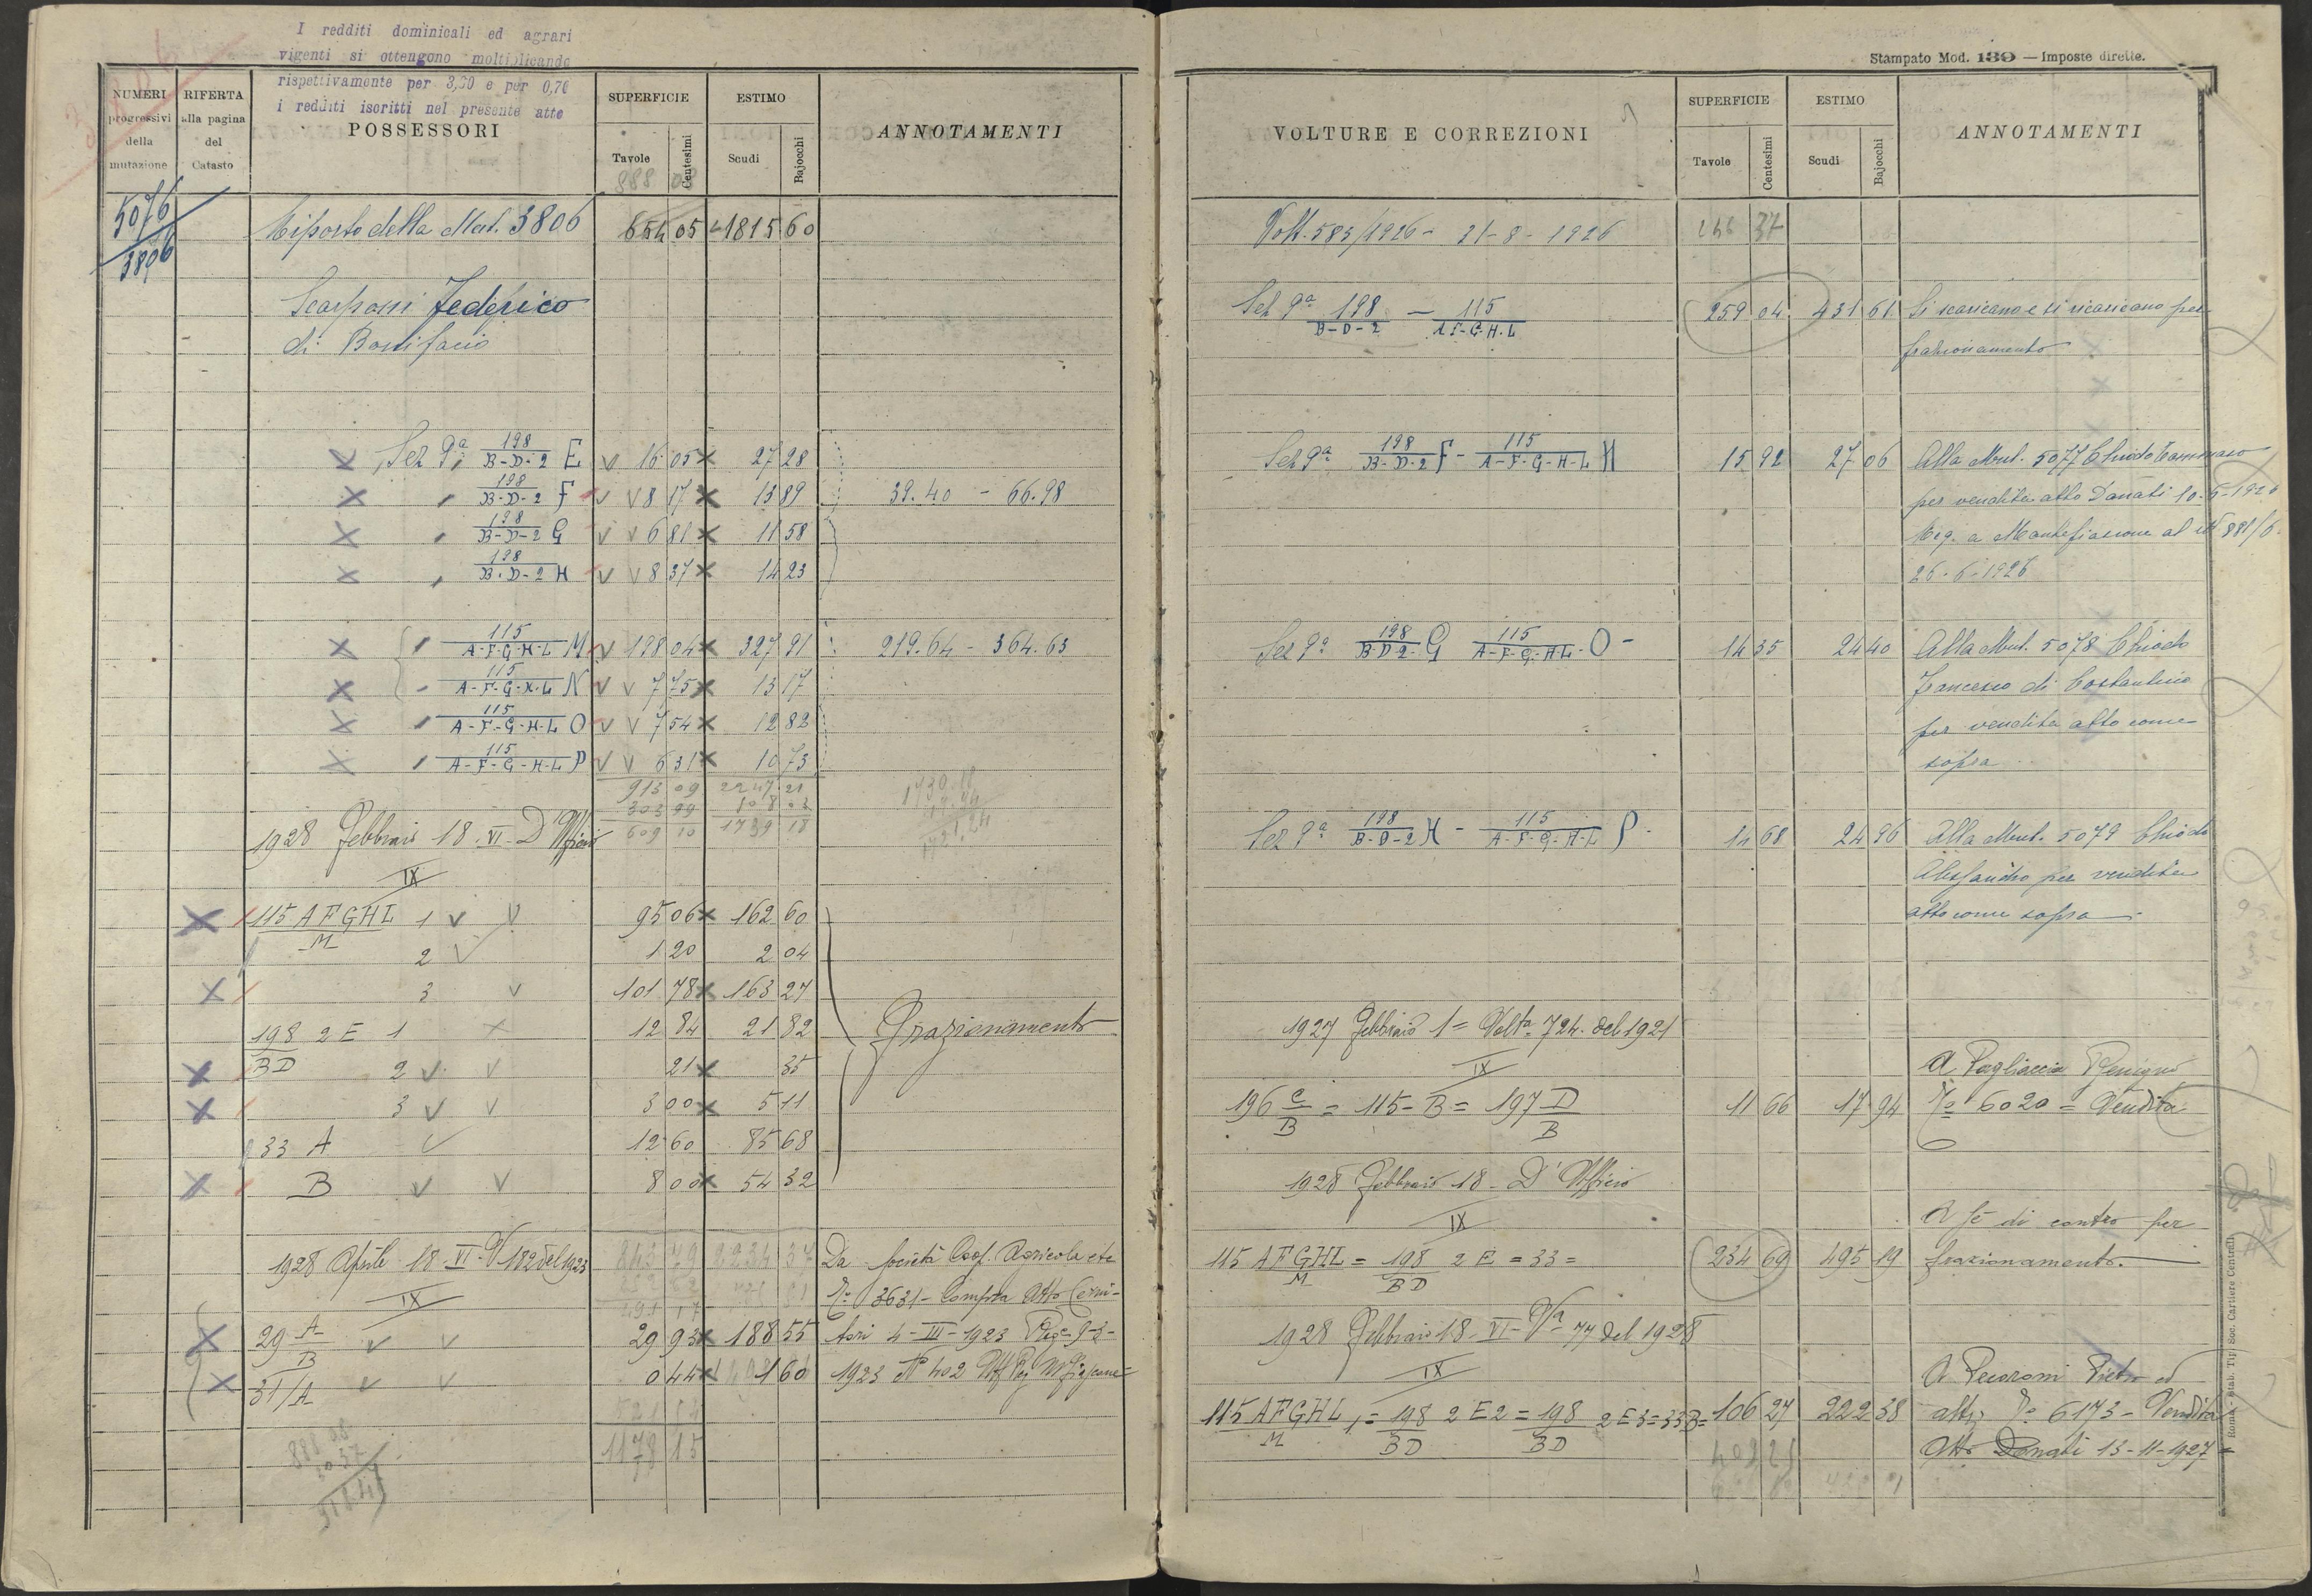 I redditi dominicali ed agrari
vigenti si ottengono moltiplicando
rispettivamente per 3,30 e per 0,70
i redditi iscritti nel presente atto
NUMERI progressivi della mutazione
RIFERTA alla pagina del Catasto
POSSESSORI
SUPERFICIE
Tavole Centesimi
ESTIMO
Scudi Bajocchi
ANNOTAMENTI
888 08
5076
3806
Riporto della Mut. 3806 654 05 1815 60
Scarponi Federico
di Bonifacio
Sez 9ª 198/B-D-2 E 16 05 27 28
" 198/B-D-2 F 8 17 13 89 39.40 - 66.98
" 198/B-D-2 G 6 81 11 58
" 198/B-D-2 H 8 37 14 23
" 115/A-F-G-H-L M 198 04 327 91 219.64 - 364.63
" 115/A-F-G-H-L N 7 75 13 17
" 115/A-F-G-H-L O 7 54 12 82
" 115/A-F-G-H-L P 6 31 10 73
913 09 2247 21
303 99
609 10 1739 18
1928 Febbraio 18 - VI - D'Ufficio
IX
115 AFGHL/M 1 95 06 162 60
2 1 20 2 04
3 101 78 163 27
198/BD 2 E 1 12 84 21 82 Frazionamento
2 21 35
3 3 00 5 11
33 A 12 60 85 68
B 8 00 54 32
1928 Aprile 18 - VI - V 182 del 1923 Da Società Coop. Agricola etc
IX Nº 3631 - Compra Atto Cerri-
29 A/B 29 93 188 55 tori 4 - III - 1923 Reg. 9-3-
31/A 0 44 1 60 1923 Nº 402
1178 15
888 08
Stampato Mod. 139 — Imposte dirette.
VOLTURE E CORREZIONI
SUPERFICIE
Tavole Centesimi
ESTIMO
Scudi Bajocchi
ANNOTAMENTI
Volt. 583/1926 - 21-8-1926 37
Sez 9ª 198/B-D-2 — 115/A-F-G-H-L 259 04 431 61 Si scaricano e si ricaricano per
frazionamento
Sez 9ª 198/B-D-2 F - 115/A-F-G-H-L N 15 92 27 06 Alla Mut. 5077 Chiodo Tommaso
per vendita atto Donati 10-6-1926
Reg. a Montefiascone al Nº 881/6
26-6-1926
Sez 9ª 198/B-D-2 G 115/A-F-G-H-L O - 14 35 24 40 Alla Mut. 5078 Chiodo
Francesco di Costantino
per vendita atto come
sopra
Sez 9ª 198/B-D-2 H - 115/A-F-G-H-L P - 14 68 24 96 Alla Mut. 5079 Chiodo
Alessandro per vendita
atto come sopra
1927 Febbraio 1 = Voltª 724 del 1921
IX A Pagliaccia Benigno
196 C/B = 115-B = 197 D/B 11 66 17 94 Nº 6020 = Vendita
1928 Febbraio 18 - D'Ufficio
IX A sé di contro per
115 AFGHL/M = 198/BD 2 E = 33 = 234 69 495 19 frazionamento.
1928 Febbraio 18 - VI - Vª 77 del 1928
IX A Pecoroni Pietro ed
115 AFGHL/M 1 = 198/BD 2 E 2 = 198/BD 2 E 3 = 33 B = 106 27 222 38 altri Nº 6173 - Vendita
Atto Donati 13-11-1927 =
Roma - Stab. Tip. Soc. Cartiere Centrali